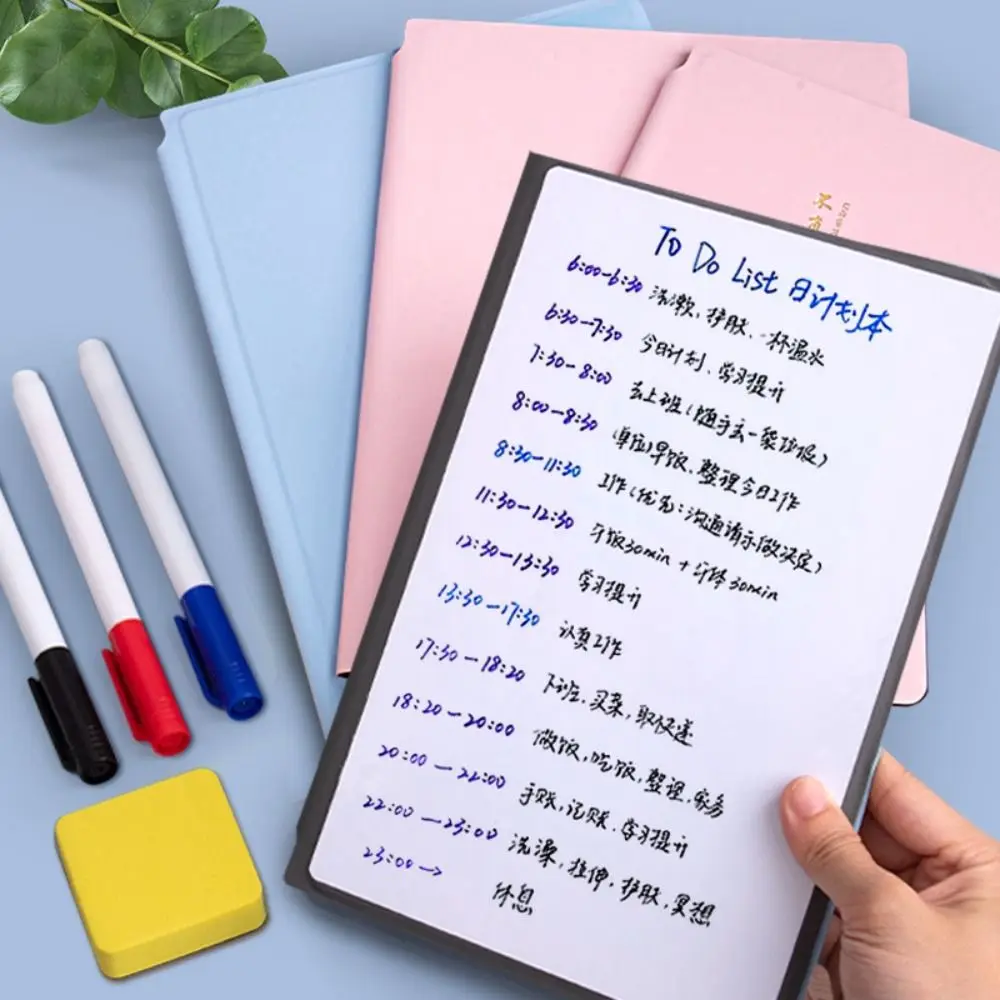 To Do List 日计划本
6:00-6:30 洗漱, 护肤, 一杯温水
6:30-7:30 今日计划、学习提升
7:30-8:00 去上班(随手去一袋垃圾)
8:00-8:30 (单位)早饭、整理今日工作
8:30-11:30 工作(优先:沟通请示做决定)
11:30-12:30 午饭30min + 午休30min
12:30-13:30 学习提升
13:30-17:30 认真工作
17:30-18:20 下班、买菜, 取快递
18:20-20:00 做饭, 吃饭, 整理, 家务
20:00-22:00 手账, 记账、学习提升
22:00-23:00 洗澡, 拉伸, 护肤, 冥想
23:00→ 休息
不